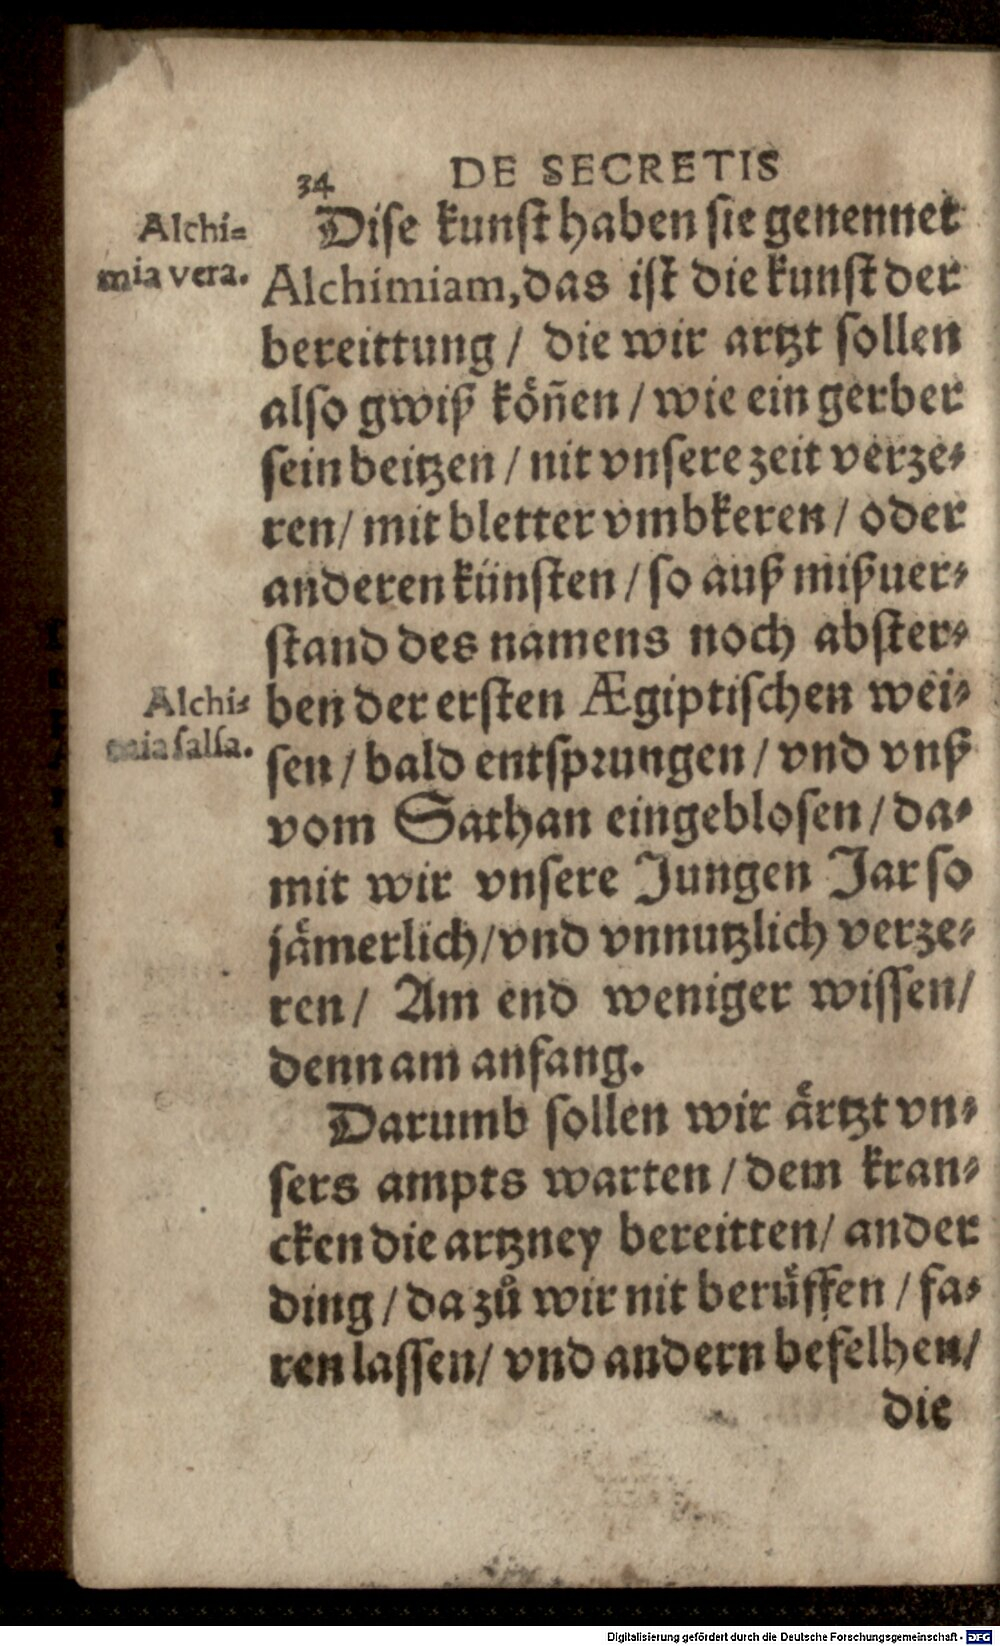 34 DE SECRETIS
Alchi=
mia vera.
Dise kunst haben sie genennet
Alchimiam, das ist die kunst der
bereittung / die wir artzt sollen
also gwiß köñen / wie ein gerber
sein beitzen / nit vnsere zeit verze=
ren / mit bletter vmbkeren / oder
anderen künsten / so auß mißuer=
stand des namens noch abster=
Alchi=
mia falsa.
ben der ersten Ægiptischen wei=
sen / bald entsprungen / vnd vnß
vom Sathan eingeblosen / da=
mit wir vnsere Jungen Jar so
jämerlich / vnd vnnutzlich verze=
ren / Am end weniger wissen /
denn am anfang.
Darumb sollen wir ärtzt vn=
sers ampts warten / dem kran=
cken die artzney bereitten / ander
ding / da zů wir nit berüffen / fa=
ren lassen / vnd andern befelhen /
die
Digitalisierung gefördert durch die Deutsche Forschungsgemeinschaft - DFG